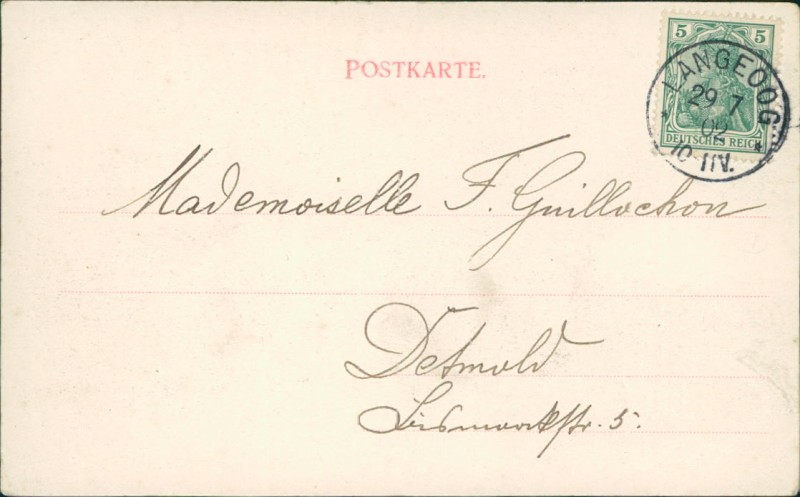 POSTKARTE.
5 5
DEUTSCHES REICH
LANGEOOG
29 7
02
10-11V.
Mademoiselle F. Guillochon
Detmold
Bismarckstr. 5.